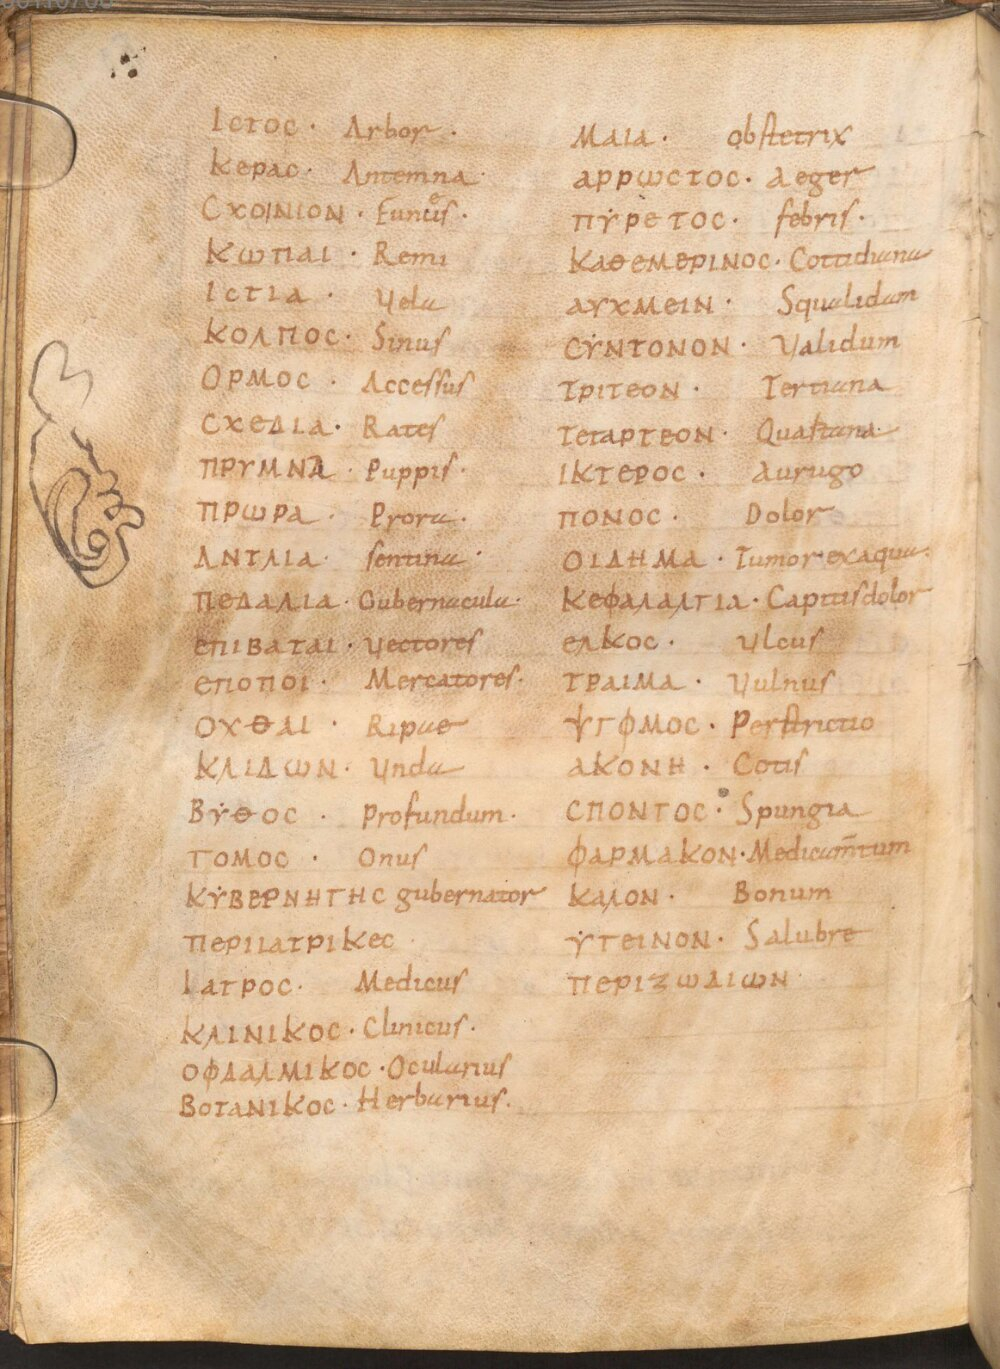 ΙϹΤΟϹ · Arbor ·
ΚΕΡΑϹ · Antemna ·
ϹΧΟΙΝΙΟΝ · Funus ·
ΚΩΠΑΙ · Remi
ΙϹΤΙΑ · Vela
ΚΟΛΠΟϹ · Sinus
ΟΡΜΟϹ · Accessus
ϹΧΕΔΙΑ · Rates
ΠΡΥΜΝΑ · Puppis ·
ΠΡΩΡΑ · Prora ·
ΑΝΤΛΙΑ · sentina ·
ΠΕΔΑΛΙΑ · Gubernacula ·
ΕΠΙΒΑΤΑΙ · Vectores
ΕΠΟΠΟΙ · Mercatores ·
ΟΧΘΑΙ · Ripae
ΚΛΙΔΩΝ · Vnda
ΒΥΘΟϹ · Profundum ·
ΓΟΜΟϹ · Onus
ΚΥΒΕΡΝΗΤΗϹ gubernator
ΠΕΡΙΙΑΤΡΙΚΕϹ ·
ΙΑΤΡΟϹ · Medicus
ΚΛΙΝΙΚΟϹ · Clinicus ·
ΟΦΔΑΛΜΙΚΟϹ · Ocularius
ΒΟΤΑΝΙΚΟϹ · Herbarius ·
ΜΑΙΑ · obstetrix
ΑΡΡΩϹΤΟϹ · Aeger
ΠΥΡΕΤΟϹ · febris ·
ΚΑΘΕΜΕΡΙΝΟϹ · Cottidiana
ΑΥΧΜΕΙΝ · Squalidam
ϹΥΝΤΟΝΟΝ · Validum
ΤΡΙΤΕΟΝ · Tertiana
ΤΕΤΑΡΤΕΟΝ · Quartana ·
ΙΚΤΕΡΟϹ · Aurugo
ΠΟΝΟϹ · Dolor
ΟΙΔΗΜΑ · Tumor · exaqua ·
ΚΕΦΑΛΑΛΓΙΑ · Capitisdolor
ΕΛΚΟϹ · Vlcus
ΤΡΑΙΜΑ · Vulnus
ΨΓΦΜΟϹ · Perstrictio
ΑΚΟΝΗ · Cotis
ϹΠΟΝΓΟϹ · Spungia
ΦΑΡΜΑΚΟΝ · Medicam̅tum
ΚΑΛΟΝ · Bonum
ΥΓΕΙΝΟΝ · Salubre
ΠΕΡΙΖΩΔΙΩΝ ·